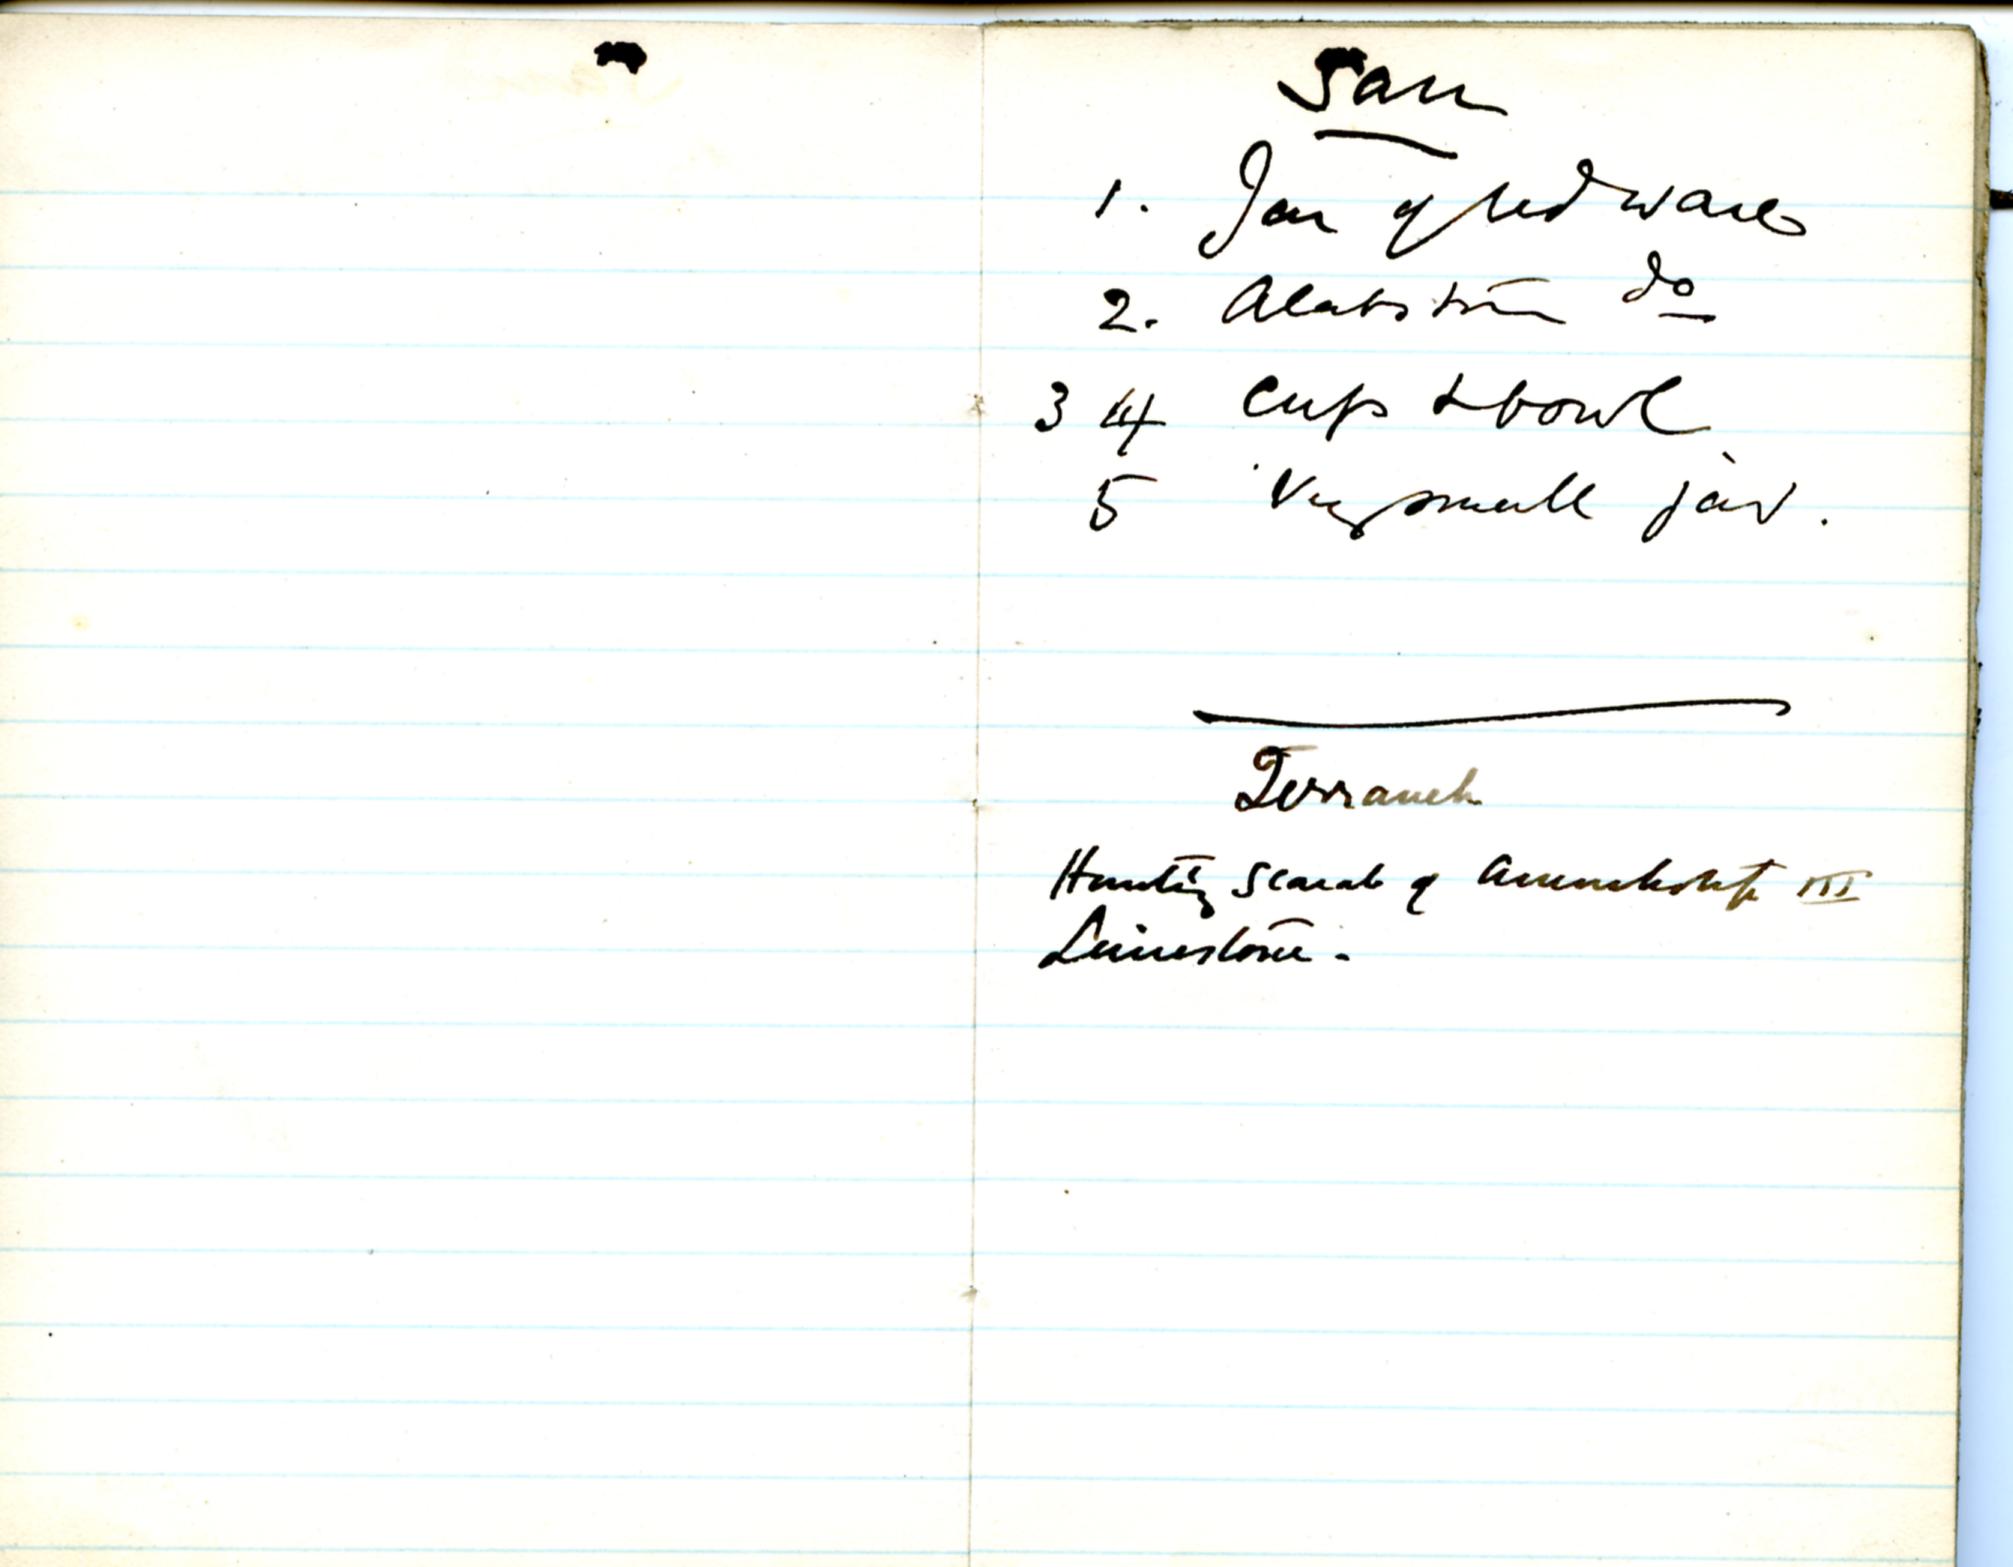 San
1. Jar of red ware
2. Alabaster do
3 4 Cup & bowl
5 Very small jar.
Terraneh
Hunting Scarab of Amenhotep III
Limestone -